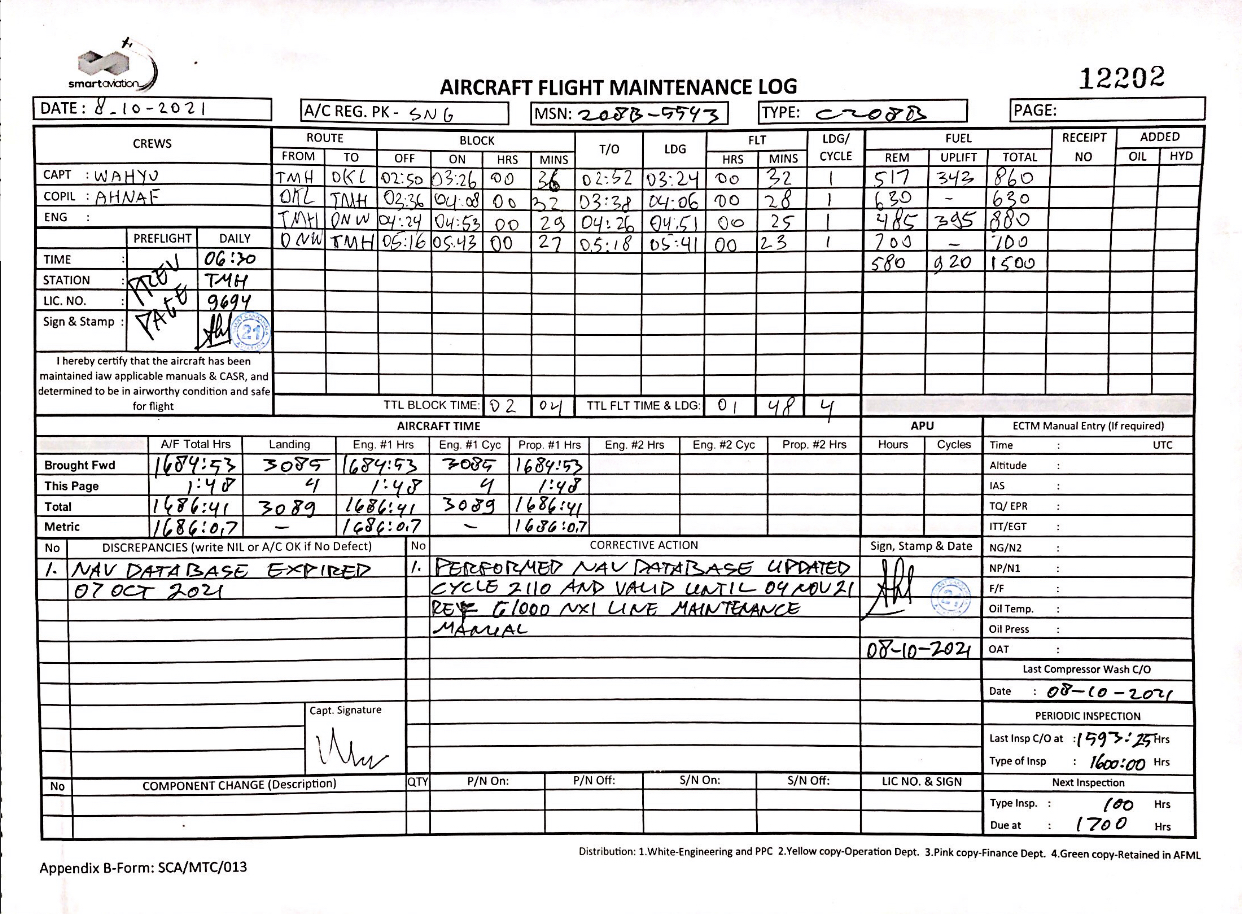 smartaviation
AIRCRAFT FLIGHT MAINTENANCE LOG
12202
DATE : 8-10-2021
A/C REG. PK - SNG
MSN: 208B-5543
TYPE: C208B
PAGE:
CREWS ROUTE BLOCK T/O LDG FLT LDG/ CYCLE FUEL RECEIPT NO ADDED
FROM TO OFF ON HRS MINS HRS MINS REM UPLIFT TOTAL OIL HYD
CAPT : WAHYU TMH DKL 02:50 03:26 00 36 02:52 03:24 00 32 1 517 343 860
COPIL : AHNAF DKL TMH 03:36 04:08 00 32 03:38 04:06 00 28 1 630 - 630
ENG : TMH ONW 04:24 04:53 00 29 04:26 04:51 00 25 1 485 395 880
PREFLIGHT DAILY ONW TMH 05:16 05:43 00 27 05:18 05:41 00 23 1 700 - 700
TIME : 06:30 580 920 1500
STATION : TMH
LIC. NO. : 9694
PREV PAGE
Sign & Stamp : 21
I hereby certify that the aircraft has been
maintained iaw applicable manuals & CASR, and
determined to be in airworthy condition and safe
for flight
TTL BLOCK TIME: 02 04 TTL FLT TIME & LDG: 01 48 4
AIRCRAFT TIME APU ECTM Manual Entry (If required)
A/F Total Hrs Landing Eng. #1 Hrs Eng. #1 Cyc Prop. #1 Hrs Eng. #2 Hrs Eng. #2 Cyc Prop. #2 Hrs Hours Cycles Time : UTC
Brought Fwd 1684:53 3085 1684:53 3085 1684:53 Altitude :
This Page 1:48 4 1:48 4 1:48 IAS :
Total 1686:41 3089 1686:41 3089 1686:41 TQ/ EPR :
Metric 1686:0,7 - 1686:0,7 - 1686:0,7 ITT/EGT :
No DISCREPANCIES (write NIL or A/C OK if No Defect) No CORRECTIVE ACTION Sign, Stamp & Date NG/N2 :
1. NAV DATABASE EXPIRED 1. PERFORMED NAV DATABASE UPDATED NP/N1 :
07 OCT 2021 CYCLE 2110 AND VALID UNTIL 04 NOV 21 F/F :
REF G1000 NXI LINE MAINTENANCE Oil Temp. :
MANUAL Oil Press :
08-10-2021 OAT :
Last Compressor Wash C/O
Date : 08-10-2021
Capt. Signature
PERIODIC INSPECTION
Last Insp C/O at : 1593:25 Hrs
Type of Insp : 1600:00 Hrs
No COMPONENT CHANGE (Description) QTY P/N On: P/N Off: S/N On: S/N Off: LIC NO. & SIGN Next Inspection
Type Insp. : 100 Hrs
Due at : 1700 Hrs
Distribution: 1.White-Engineering and PPC 2.Yellow copy-Operation Dept. 3.Pink copy-Finance Dept. 4.Green copy-Retained in AFML
Appendix B-Form: SCA/MTC/013